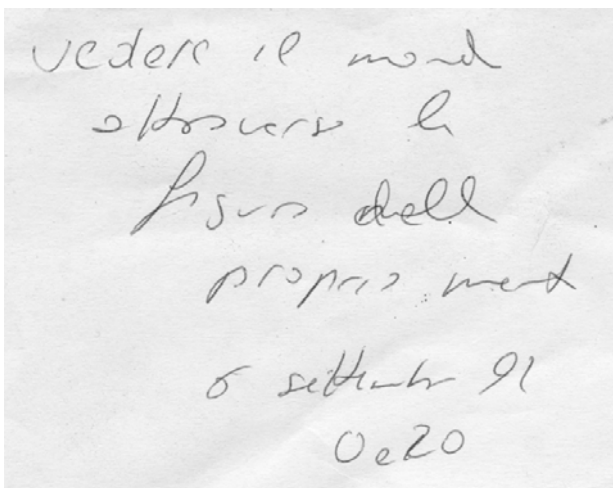 vedere il mond
attraverso la
figura dell
propria ment
6 settembr 91
0e20